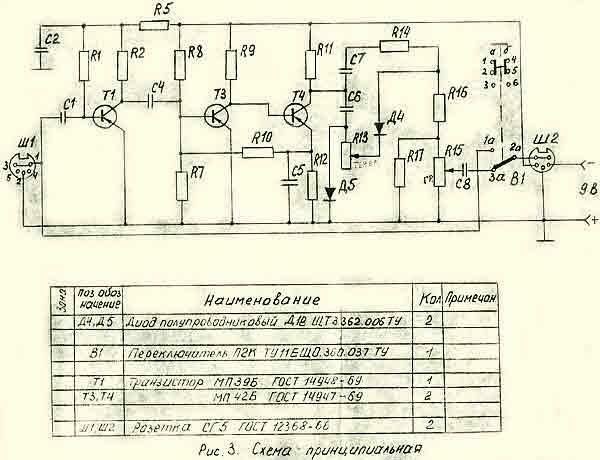 R5
C2
R1
R2
R8
R9
R11
C7
R14
а б
1 4
2 5
3 6
C1
T1
C4
T3
T4
C6
Д4
R16
Ш1
R13
R10
R7
C5
R12
Д5
R17
R15
C8
1а
2а
3а
В1
Ш2
3 1
5 2 4
−
9В
+
Зона
Поз обоз
начение
Наименование
Кол
Примечан
Д4,Д5 Диод полупроводниковый Д18 ЩТ3.362.006ТУ 2
В1 Переключатель П2К ТУ11ЕЩО.360.037 ТУ 1
Т1 Транзистор МП39Б ГОСТ 14948-69 1
Т3,Т4 МП42Б ГОСТ 14947-69 2
Ш1,Ш2 Розетка СГ5 ГОСТ 12368-66 2
Рис. 3. Схема принципиальная